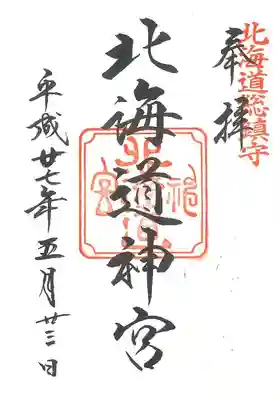 北海道総鎮守
奉拝
北海道神宮
平成廿七年五月廿三日